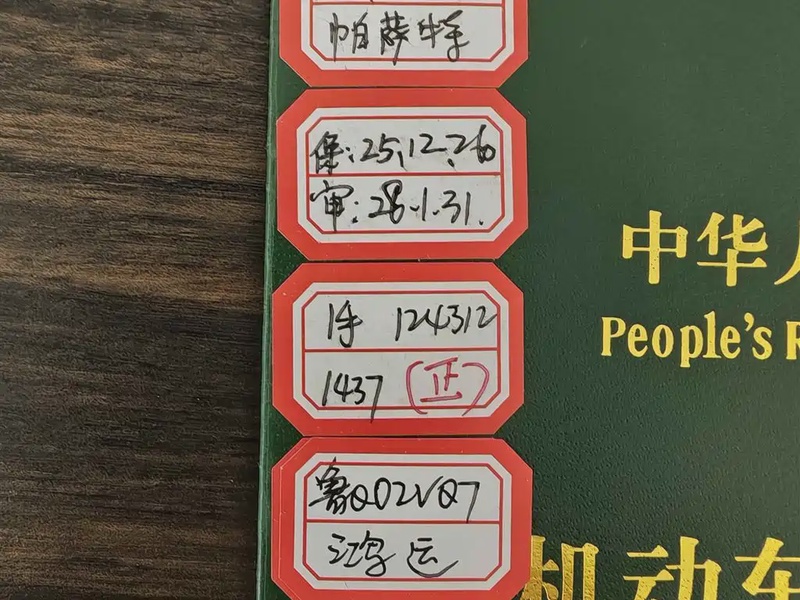 帕萨特
保:25.12.26
审:28.1.31.
1手 124312
1437 (正)
鲁Q02VQ7
鸿运
中华人
People's R
机动车